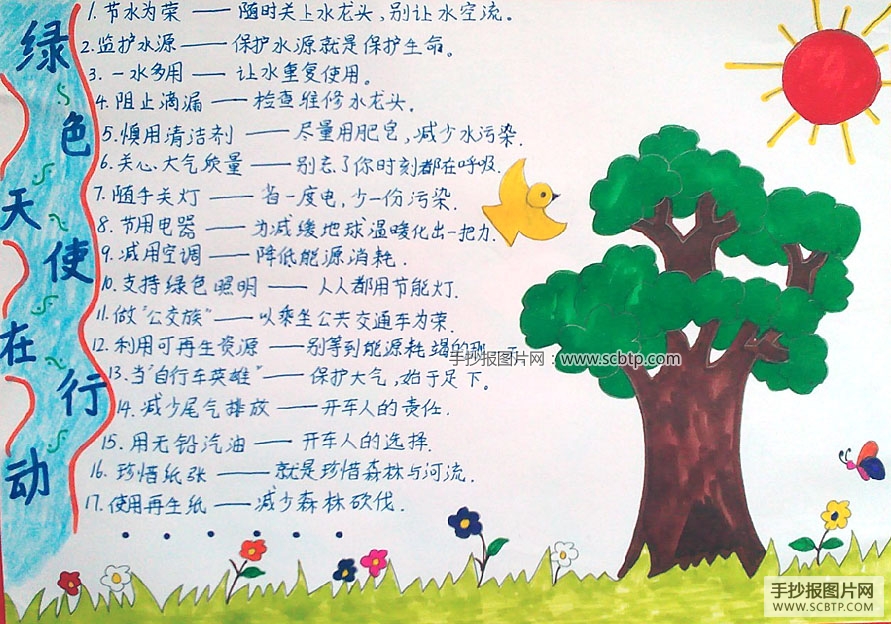 绿色天使在行动
1.节水为荣——随时关上水龙头,别让水空流。
2.监护水源——保护水源就是保护生命。
3.一水多用——让水重复使用。
4.阻止滴漏——检查维修水龙头.
5.慎用清洁剂——尽量用肥皂,减少水污染.
6.关心大气质量——别忘了你时刻都在呼吸.
7.随手关灯——省一度电,少一份污染.
8.节用电器——为减缓地球温暖化出一把力.
9.减用空调——降低能源消耗.
10.支持绿色照明——人人都用节能灯.
11.做"公交族"——以乘坐公共交通车为荣.
12.利用可再生资源——别等到能源耗竭的
手抄报图片网:www.scbtp.com
13.当"自行车英雄"——保护大气,始于足下。
14.减少尾气排放——开车人的责任.
15.用无铅汽油——开车人的选择.
16.珍惜纸张——就是珍惜森林与河流.
17.使用再生纸——减少森林砍伐.
······
手抄报图片网
WWW.SCBTP.COM